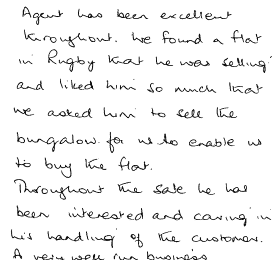 Agent has been excellent
throughout. We found a flat
in Rugby that he was selling
and liked him so much that
we asked him to sell the
bungalow for us to enable us
to buy the flat.
Throughout the sale he has
been interested and caring in
his handling of the customer.
A very well run business